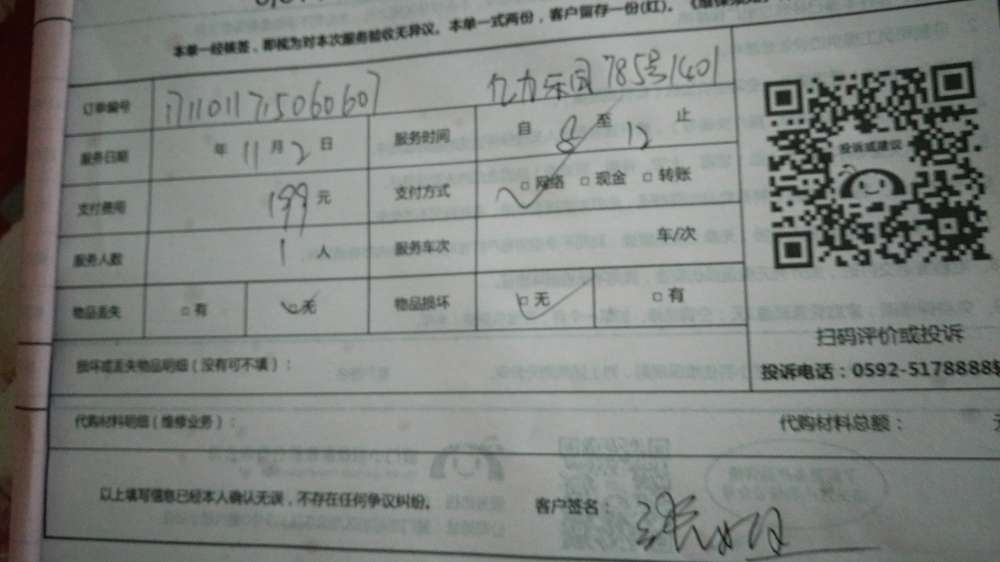 本单一经核签，即视为对本次服务验收无异议。本单一式两份，客户留存一份(红)。
订单编号 1711011715060607 亿力乐园785号1401
服务日期 年11月2日 服务时间 自8至12止
支付费用 199元 支付方式 □网络 □现金 □转账
服务人数 1人 服务车次 车/次
物品丢失 □有 □无 物品损坏 □无 □有
投诉或建议
扫码评价或投诉
损坏或丢失物品明细（没有可不填）：
投诉电话：0592-5178888
代购材料明细（维修业务）： 代购材料总额：
以上填写信息已经本人确认无误，不存在任何争议纠纷。 客户签名：